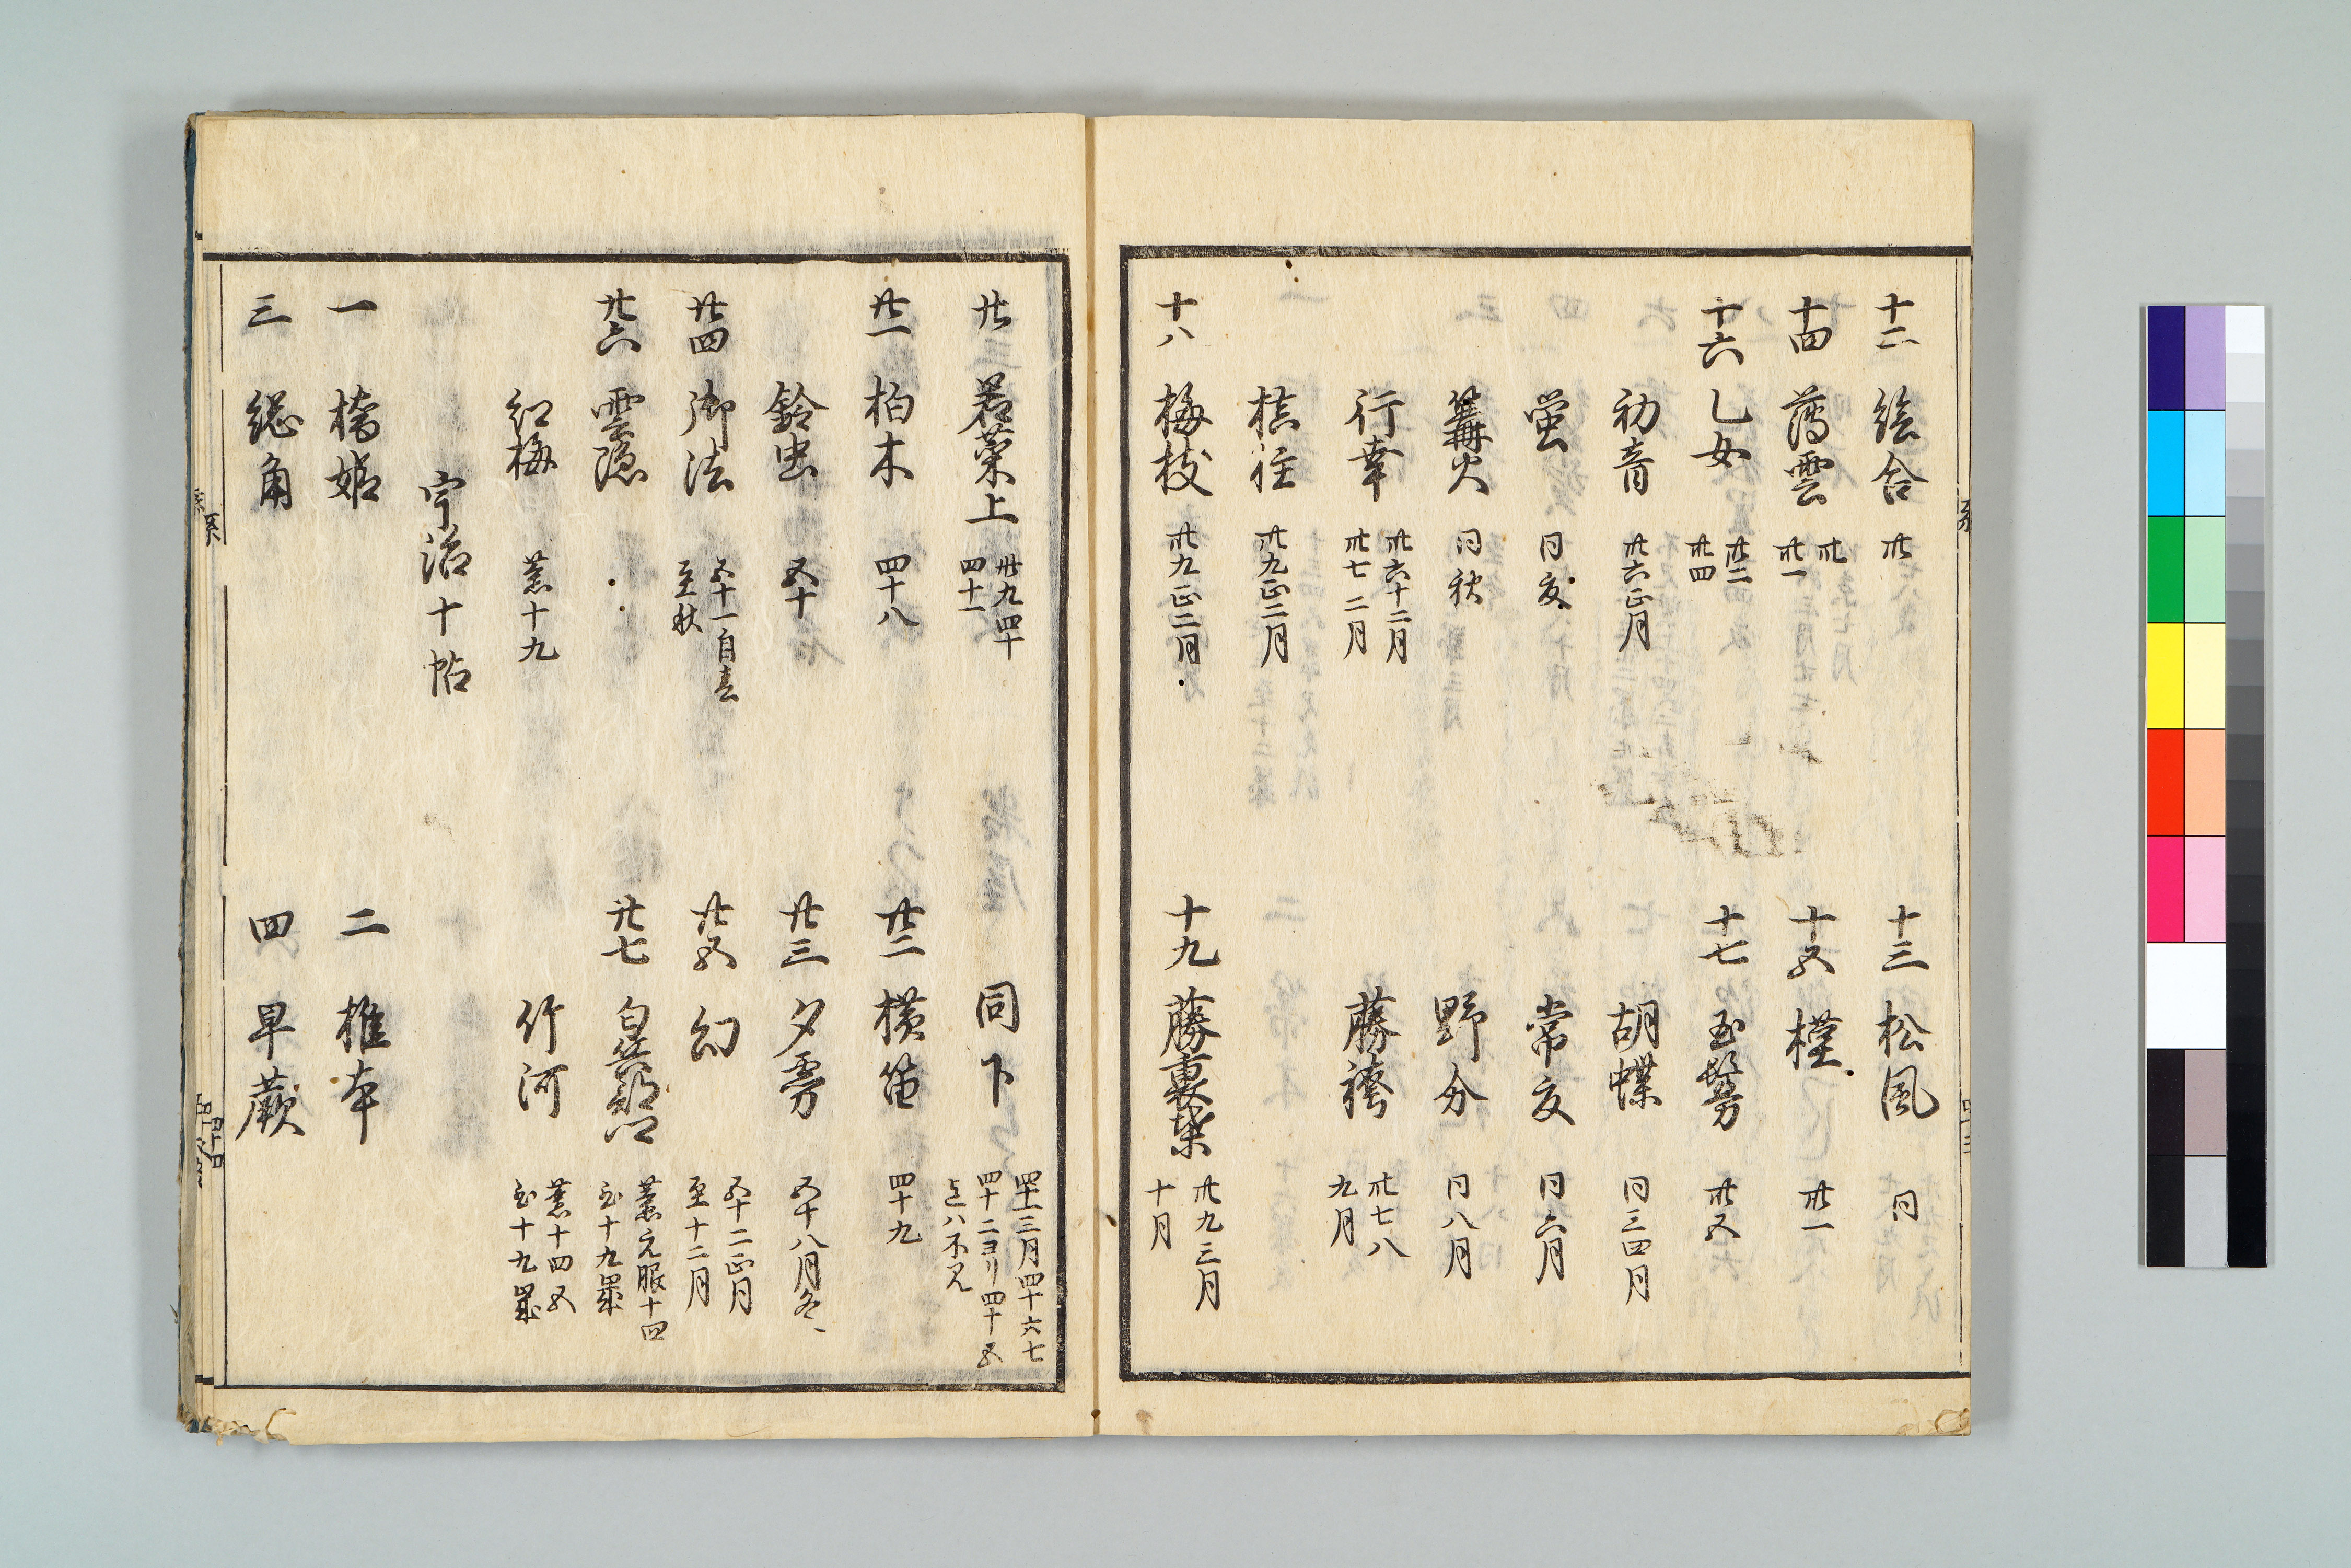 十二 絵合 卅
十三 松風 同
十四 薄雲 卅 卅一
十五 槿 卅一
十六 乙女 卅二 卅四
十七 玉鬘 卅五
初音 卅六正月
胡蝶 同三四月
蛍 同夏
常夏 同六月
篝火 同秋
野分 同八月
行幸 卅六十二月 卅七二月
藤袴 卅七八九月
槙柱 卅九正二月
十八 梅枝 卅九正二月
十九 藤裏葉 卅九三月 十月
廿 若菜上 卅九四十 四十一
同下 四十一三月四十六七 四十二ヨリ四十五 迄ハ不見
廿一 柏木 四十八
廿二 横笛 四十九
鈴虫 五十
廿三 夕霧 五十八月冬
廿四 御法 五十一自春 至秋
廿五 幻 五十二正月 至十二月
廿六 雲隠
廿七 匂兵部卿 薫元服十四 至十九歳
紅梅 薫十九
竹河 薫十四五 至十九歳
宇治十帖
一 橋姫
二 椎本
三 総角
四 早蕨